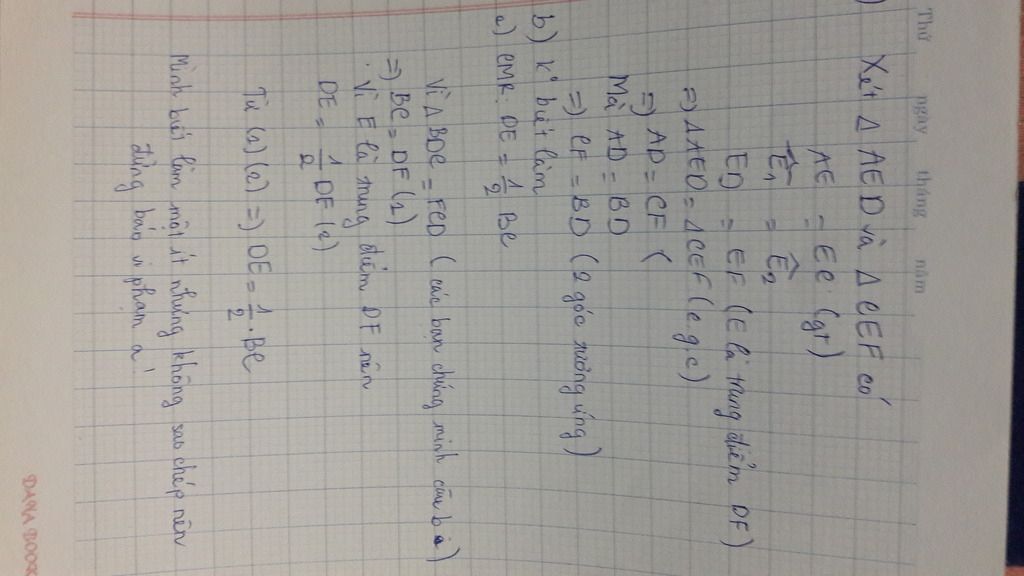 Thứ ngày tháng năm
)
Xét Δ AED và Δ CEF có
AE = EC (gt)
Ê1 = Ê2
ED = EF (E là trung điểm DF)
=) ΔAED = ΔCEF (c.g.c)
=) AD = CF (
Mà AD = BD
=) CF = BD (2 góc tương ứng)
b) K° biết làm
c) CMR: DE = 1/2 BC
Vì Δ BDC = FCD (các bạn chứng minh câu b ạ)
=) BC = DF (1)
. Vì E là trung điểm DF nên
DE = 1/2 DF (2)
Từ (1) (2) =) DE = 1/2 . BC
Mình biết làm một ít nhưng không sao chép nên
đừng báo vi phạm ạ